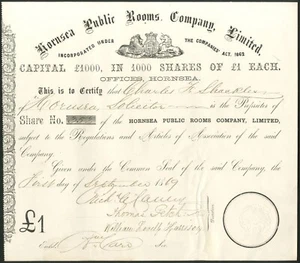 Hornsea Public Rooms Company, Limited.
INCORPORATED UNDER THE COMPANIES' ACT, 1862.
CAPITAL £1000, IN 1000 SHARES OF £1 EACH.
OFFICES, HORNSEA.
This is to Certify that Charles
of Hornsea Solicitor is the Proprietor of
Share No. of the HORNSEA PUBLIC ROOMS COMPANY, LIMITED,
subject to the Regulations and Articles of Association of the said
Company.
Given under the Common Seal of the said Company, the
First day of September 1869
Thomas
William
£1